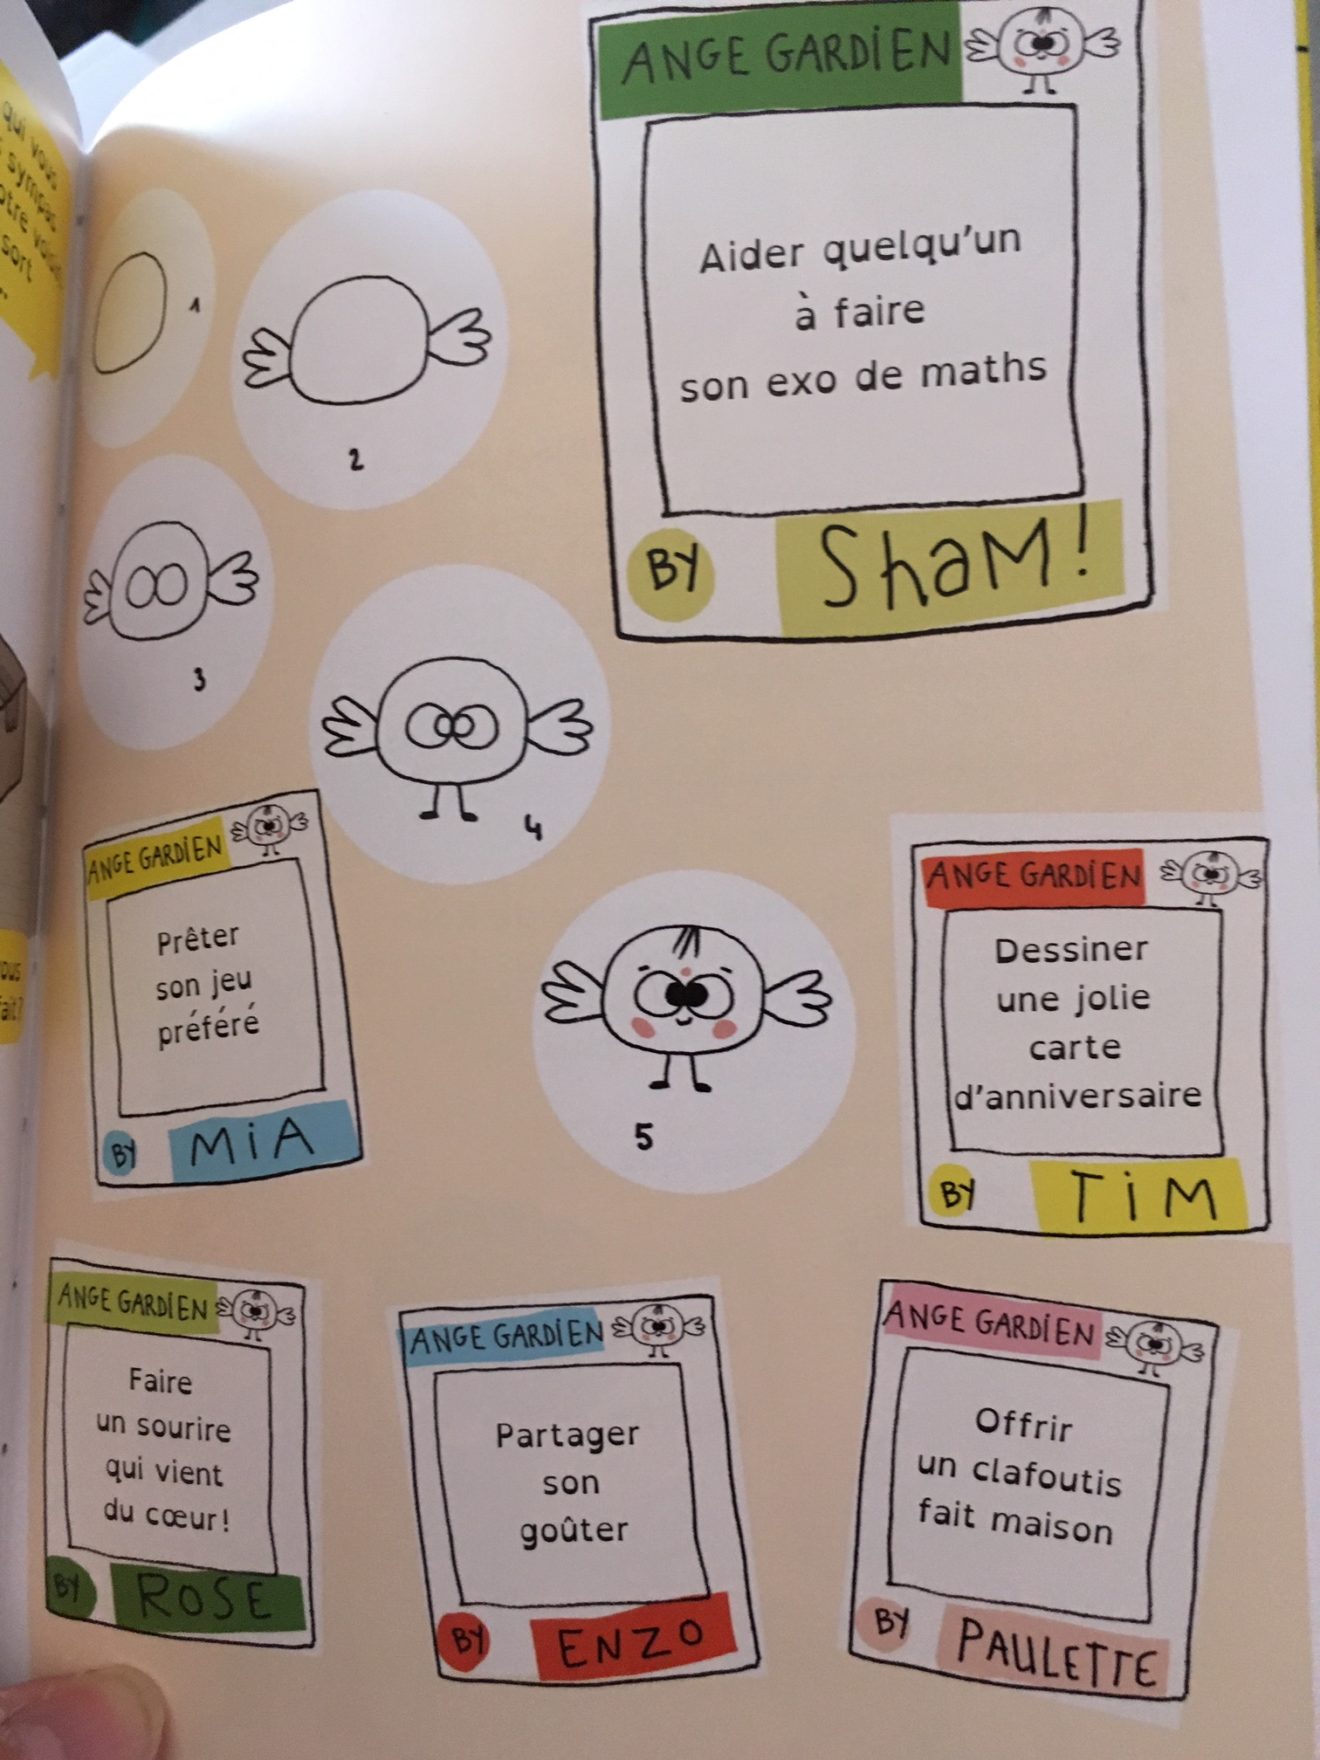 qui vous
sympas
sort
ANGE GARDIEN
Aider quelqu'un
à faire
son exo de maths
BY ShaM!
1
2
3
4
ANGE GARDIEN
Prêter
son jeu
préféré
BY MiA
5
ANGE GARDIEN
Dessiner
une jolie
carte
d'anniversaire
BY TiM
ANGE GARDIEN
Faire
un sourire
qui vient
du cœur!
BY ROSE
ANGE GARDIEN
Partager
son
goûter
BY ENZO
ANGE GARDIEN
Offrir
un clafoutis
fait maison
BY PAULETTE